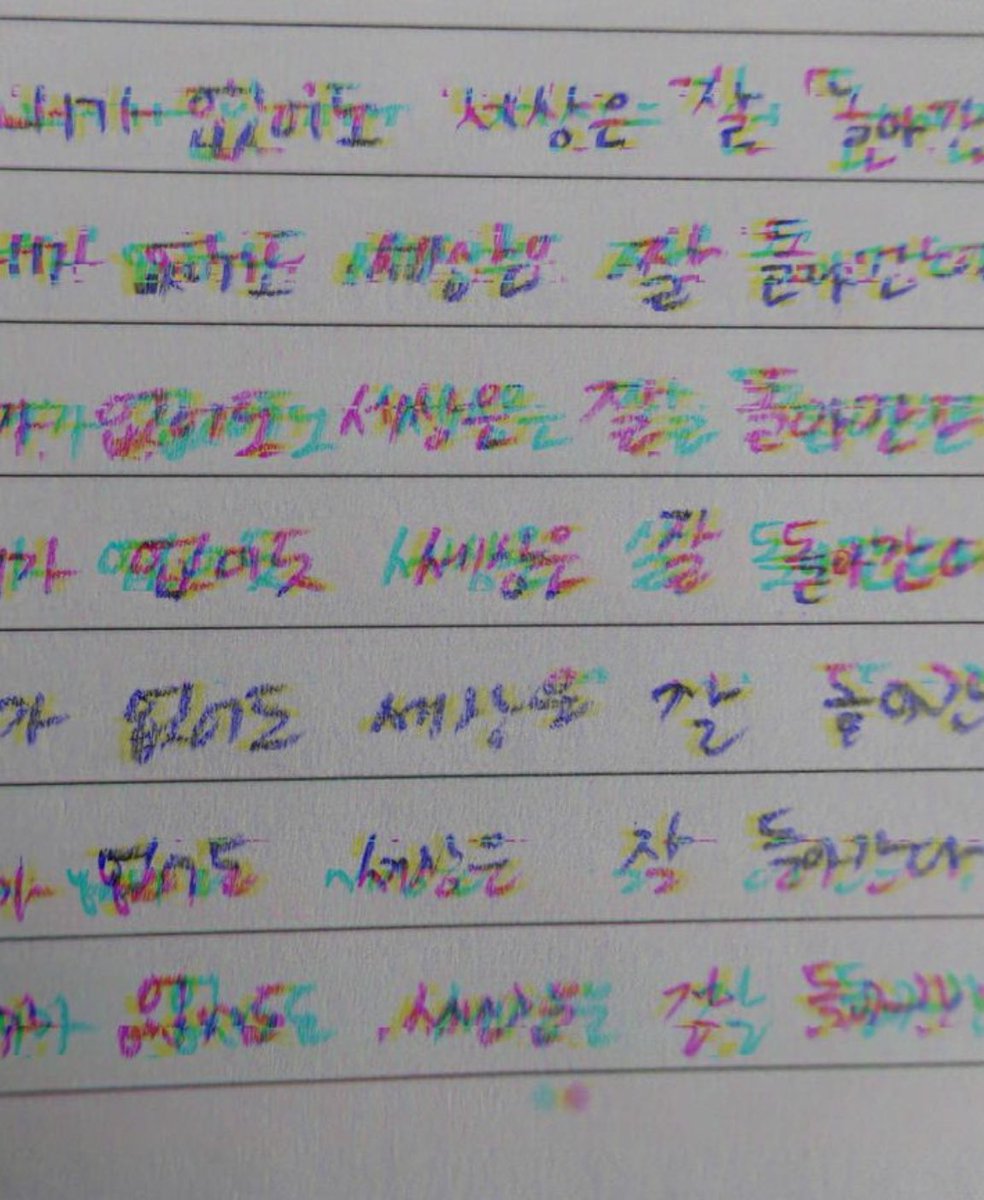 내가 없어도 세상은 잘 돌아간
내가 없어도 세상은 잘 돌아간다
가 없어도 세상은 잘 돌아간다
가 없어도 세상은 잘 돌아간다
가 없어도 세상은 잘 돌아간
가 없어도 세상은 잘 돌아간다
가 없어도 세상은 잘 돌아간